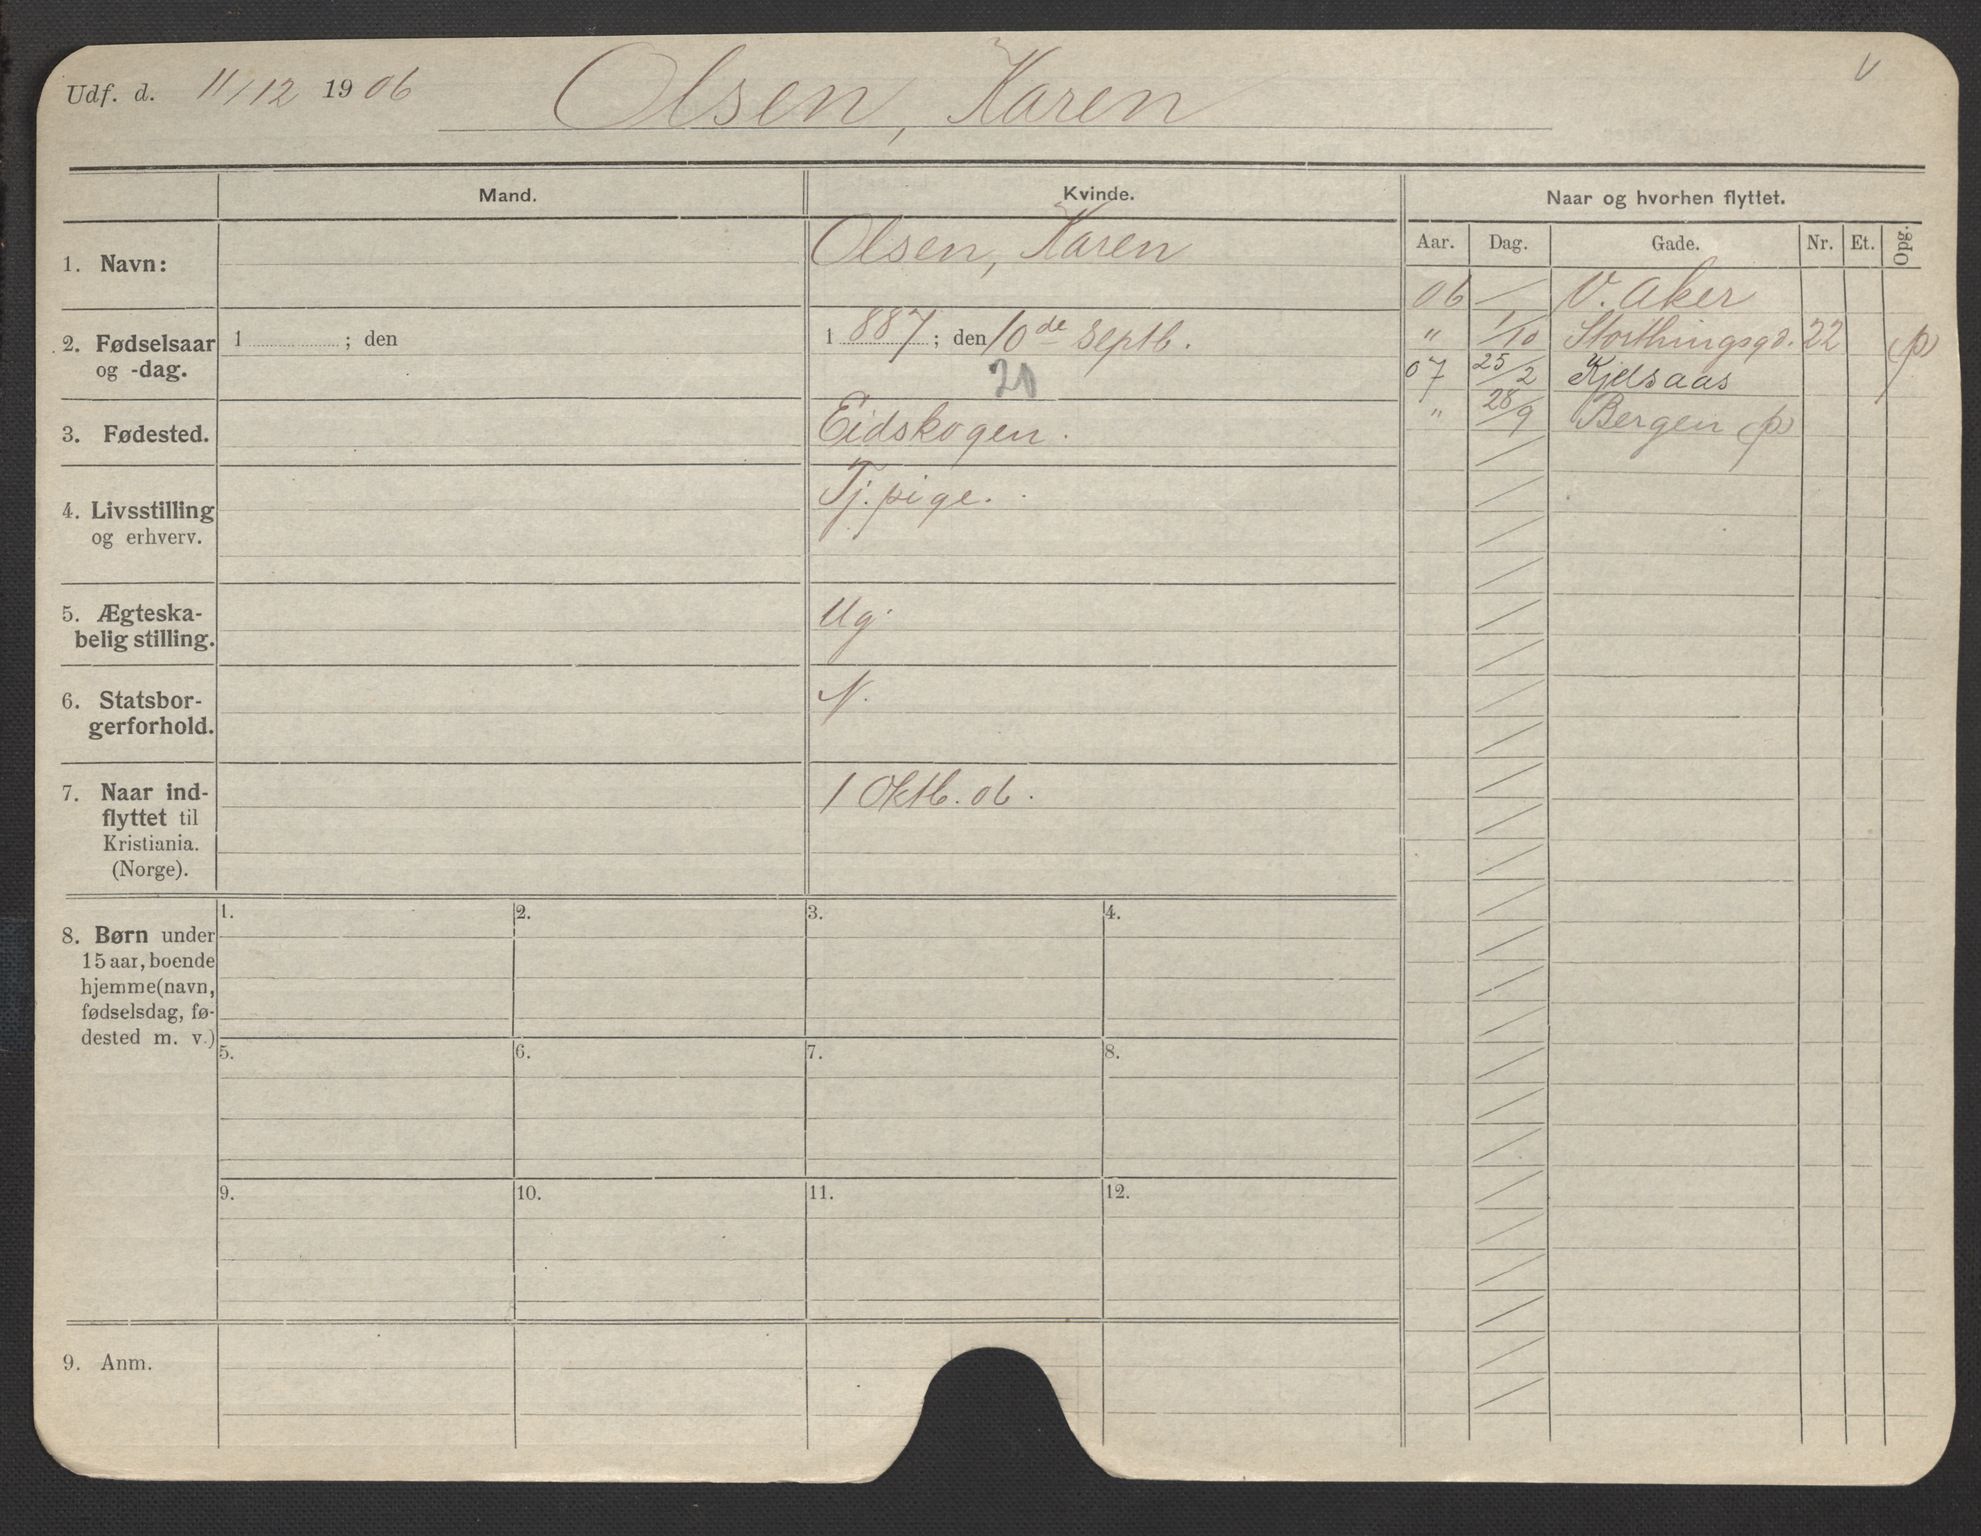 Udf. d. 11/12 1906 Olsen, Karen
V
Mand. Kvinde. Naar og hvorhen flyttet.
Aar. Dag. Gade. Nr. Et. Opg.
1. Navn: Olsen, Karen
06 V. Aker
2. Fødselsaar og -dag. 1 ; den 1 887 ; den 10de Septb.
20
" 1/10 Storthingsgd. 22 (p)
07 25/2 Kjelsaas
" 28/9 Bergen (p)
3. Fødested. Eidskogen.
4. Livsstilling og erhverv. Tj. pige.
5. Ægteska-
belig stilling. Ug.
6. Statsbor-
gerforhold. N.
7. Naar ind-
flyttet til
Kristiania.
(Norge). 1 Oktb. 06.
8. Børn under
15 aar, boende
hjemme (navn,
fødselsdag, fø-
dested m. v.)
1. 2. 3. 4.
5. 6. 7. 8.
9. 10. 11. 12.
9. Anm.